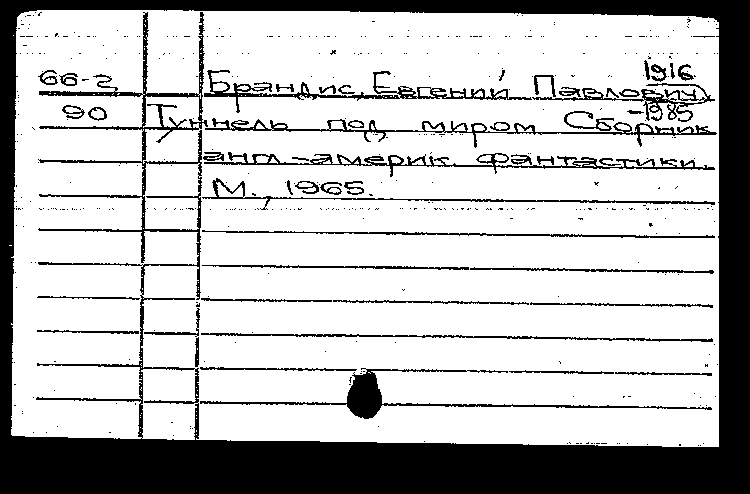 1916
66-2 Брандис, Евгений Павлович
-1985
90 Туннель под миром Сборник
англ.-америк. фантастики.
М., 1965.